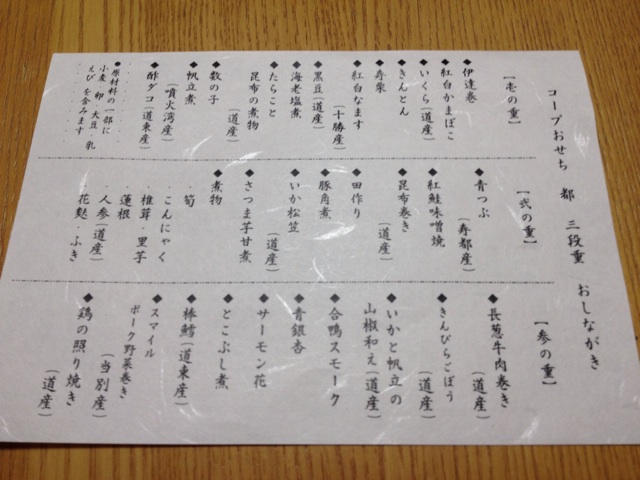 コープおせち 都 三段重 おしながき
【壱の重】
◆伊達巻
◆紅白かまぼこ
◆いくら(道産)
◆きんとん
◆寿栗
◆紅白なます
(十勝産)
◆黒豆(道産)
◆海老塩煮
◆たらこと
昆布の煮物
(道産)
◆数の子
◆帆立煮
(噴火湾産)
◆酢ダコ(道東産)
●原材料の一部に
小麦・卵・大豆・乳・
えび を含みます
【弐の重】
◆青つぶ
(寿都産)
◆紅鮭味噌焼
◆昆布巻き
(道産)
◆田作り
◆豚角煮
◆いか松笠
(道産)
◆さつま芋甘煮
◆煮物
・筍
・こんにゃく
・椎茸・里芋
・蓮根
・人参(道産)
・花麩・ふき
【参の重】
◆長葱牛肉巻き
(道産)
◆きんぴらごぼう
(道産)
◆いかと帆立の
山椒和え(道産)
◆合鴨スモーク
◆青銀杏
◆サーモン花
◆とこぶし煮
◆棒鱈(道東産)
◆スマイル
ポーク野菜巻き
(当別産)
◆鶏の照り焼き
(道産)